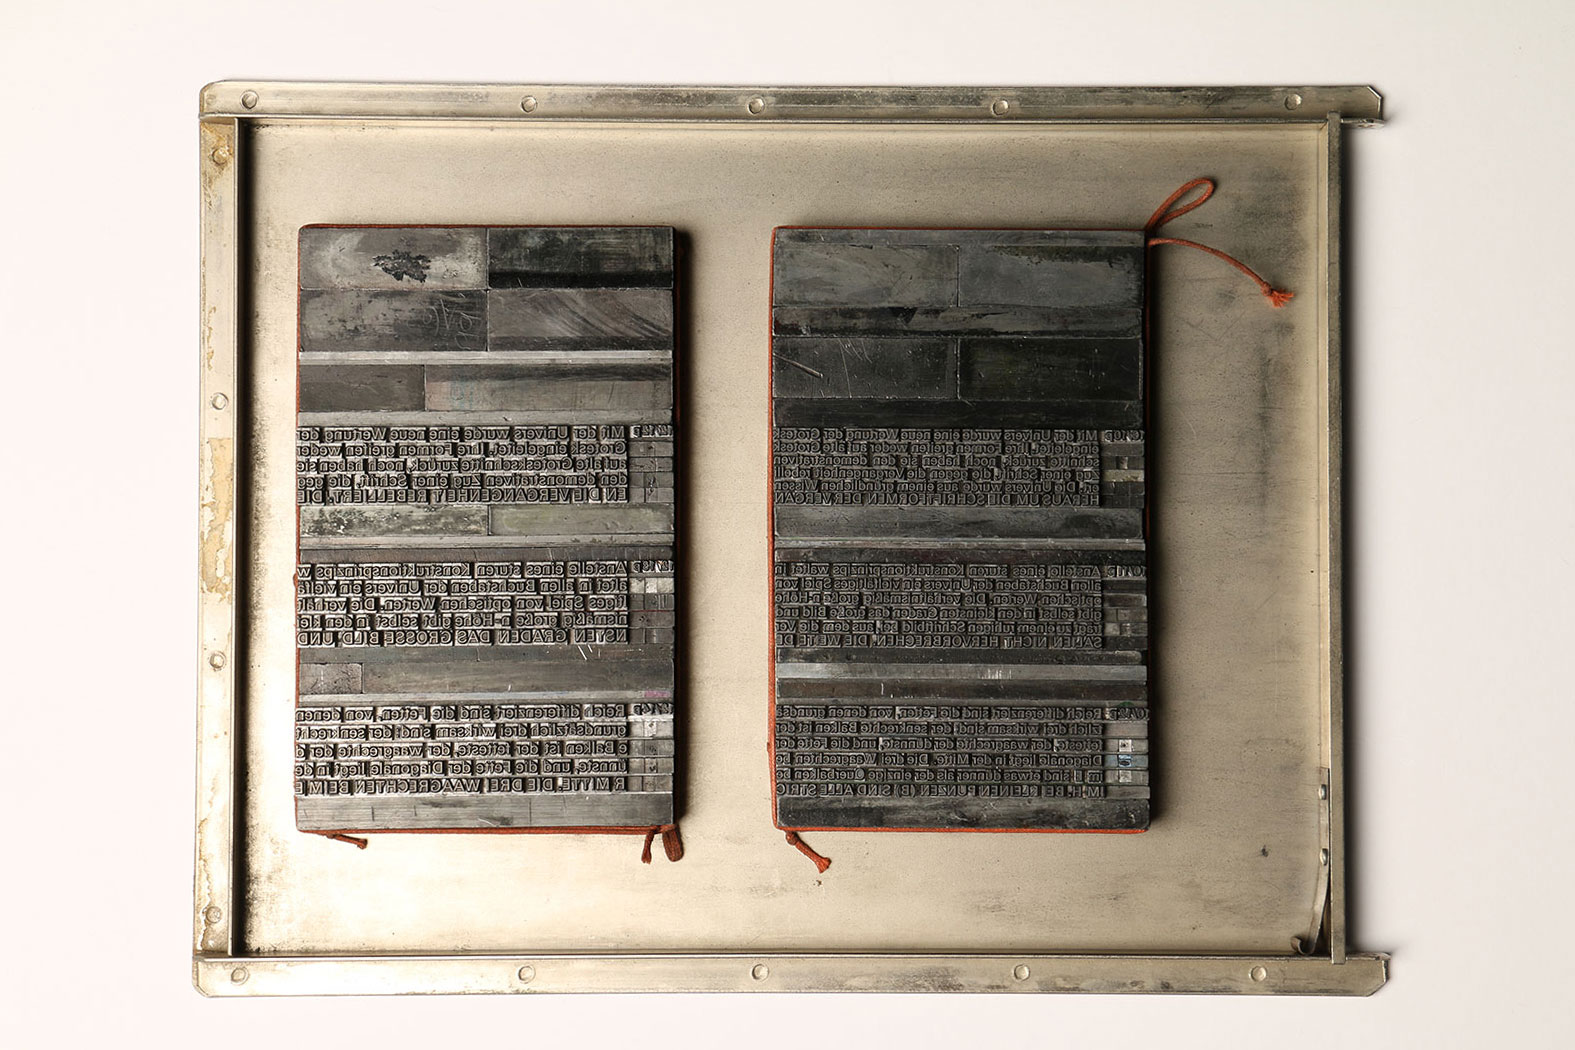 Mit der Univers wurde eine neue Wertung der
Grotesk eingeleitet. Ihre Formen greifen weder
auf alte Groteskschnitte zurück, noch haben sie
den demonstrativen Zug einer Schrift, die geg
EN DIE VERGANGENHEIT REBELLIERT. DIE
Anstelle eines sturen Konstruktionsprinzips w
altet in allen Buchstaben der Univers ein vielfält
iges Spiel von optischen Werten. Die verhält
nismäßig große n-Höhe gibt selbst in den klei
NSTEN GRADEN DAS GROSSE BILD UND
Reich differenziert sind die Fetten, von denen
grundsätzlich drei wirksam sind: der senkrecht
e Balken ist der fetteste, der waagrechte der d
ünnste, und die Fette der Diagonale liegt in de
R MITTE. DIE DREI WAAGRECHTEN BEIM E
Mit der Univers wurde eine neue Wertung der Grotesk
eingeleitet. Ihre Formen greifen weder auf alte Grotesk
schnitte zurück, noch haben sie den demonstrativen
Zug einer Schrift, die gegen die Vergangenheit rebelli
ert. Die Univers wurde aus einer gründlichen Wissen
HERAUS UM DIE SCHRIFTFORMEN DER VERGAN
Anstelle eines sturen Konstruktionsprinzips waltet in
allen Buchstaben der Univers ein vielfältiges Spiel von
optischen Werten. Die verhältnismäßig große n-Höhe
gibt selbst in den kleinsten Graden das große Bild und
führt zu einem ruhigen Schriftbild, aus dem die Ver
SALIEN NICHT HERVORBRECHEN. DIE WEITE DE
Reich differenziert sind die Fetten, von denen grundsä
tzlich drei wirksam sind: der senkrechte Balken ist der f
etteste, der waagrechte der dünnste, und die Fette der
Diagonale liegt in der Mitte. Die drei Waagrechten bei
m E sind etwas dünner als der einzige Querbalken
IM H. BEI KLEINEN PUNZEN (B) SIND ALLE STRIC